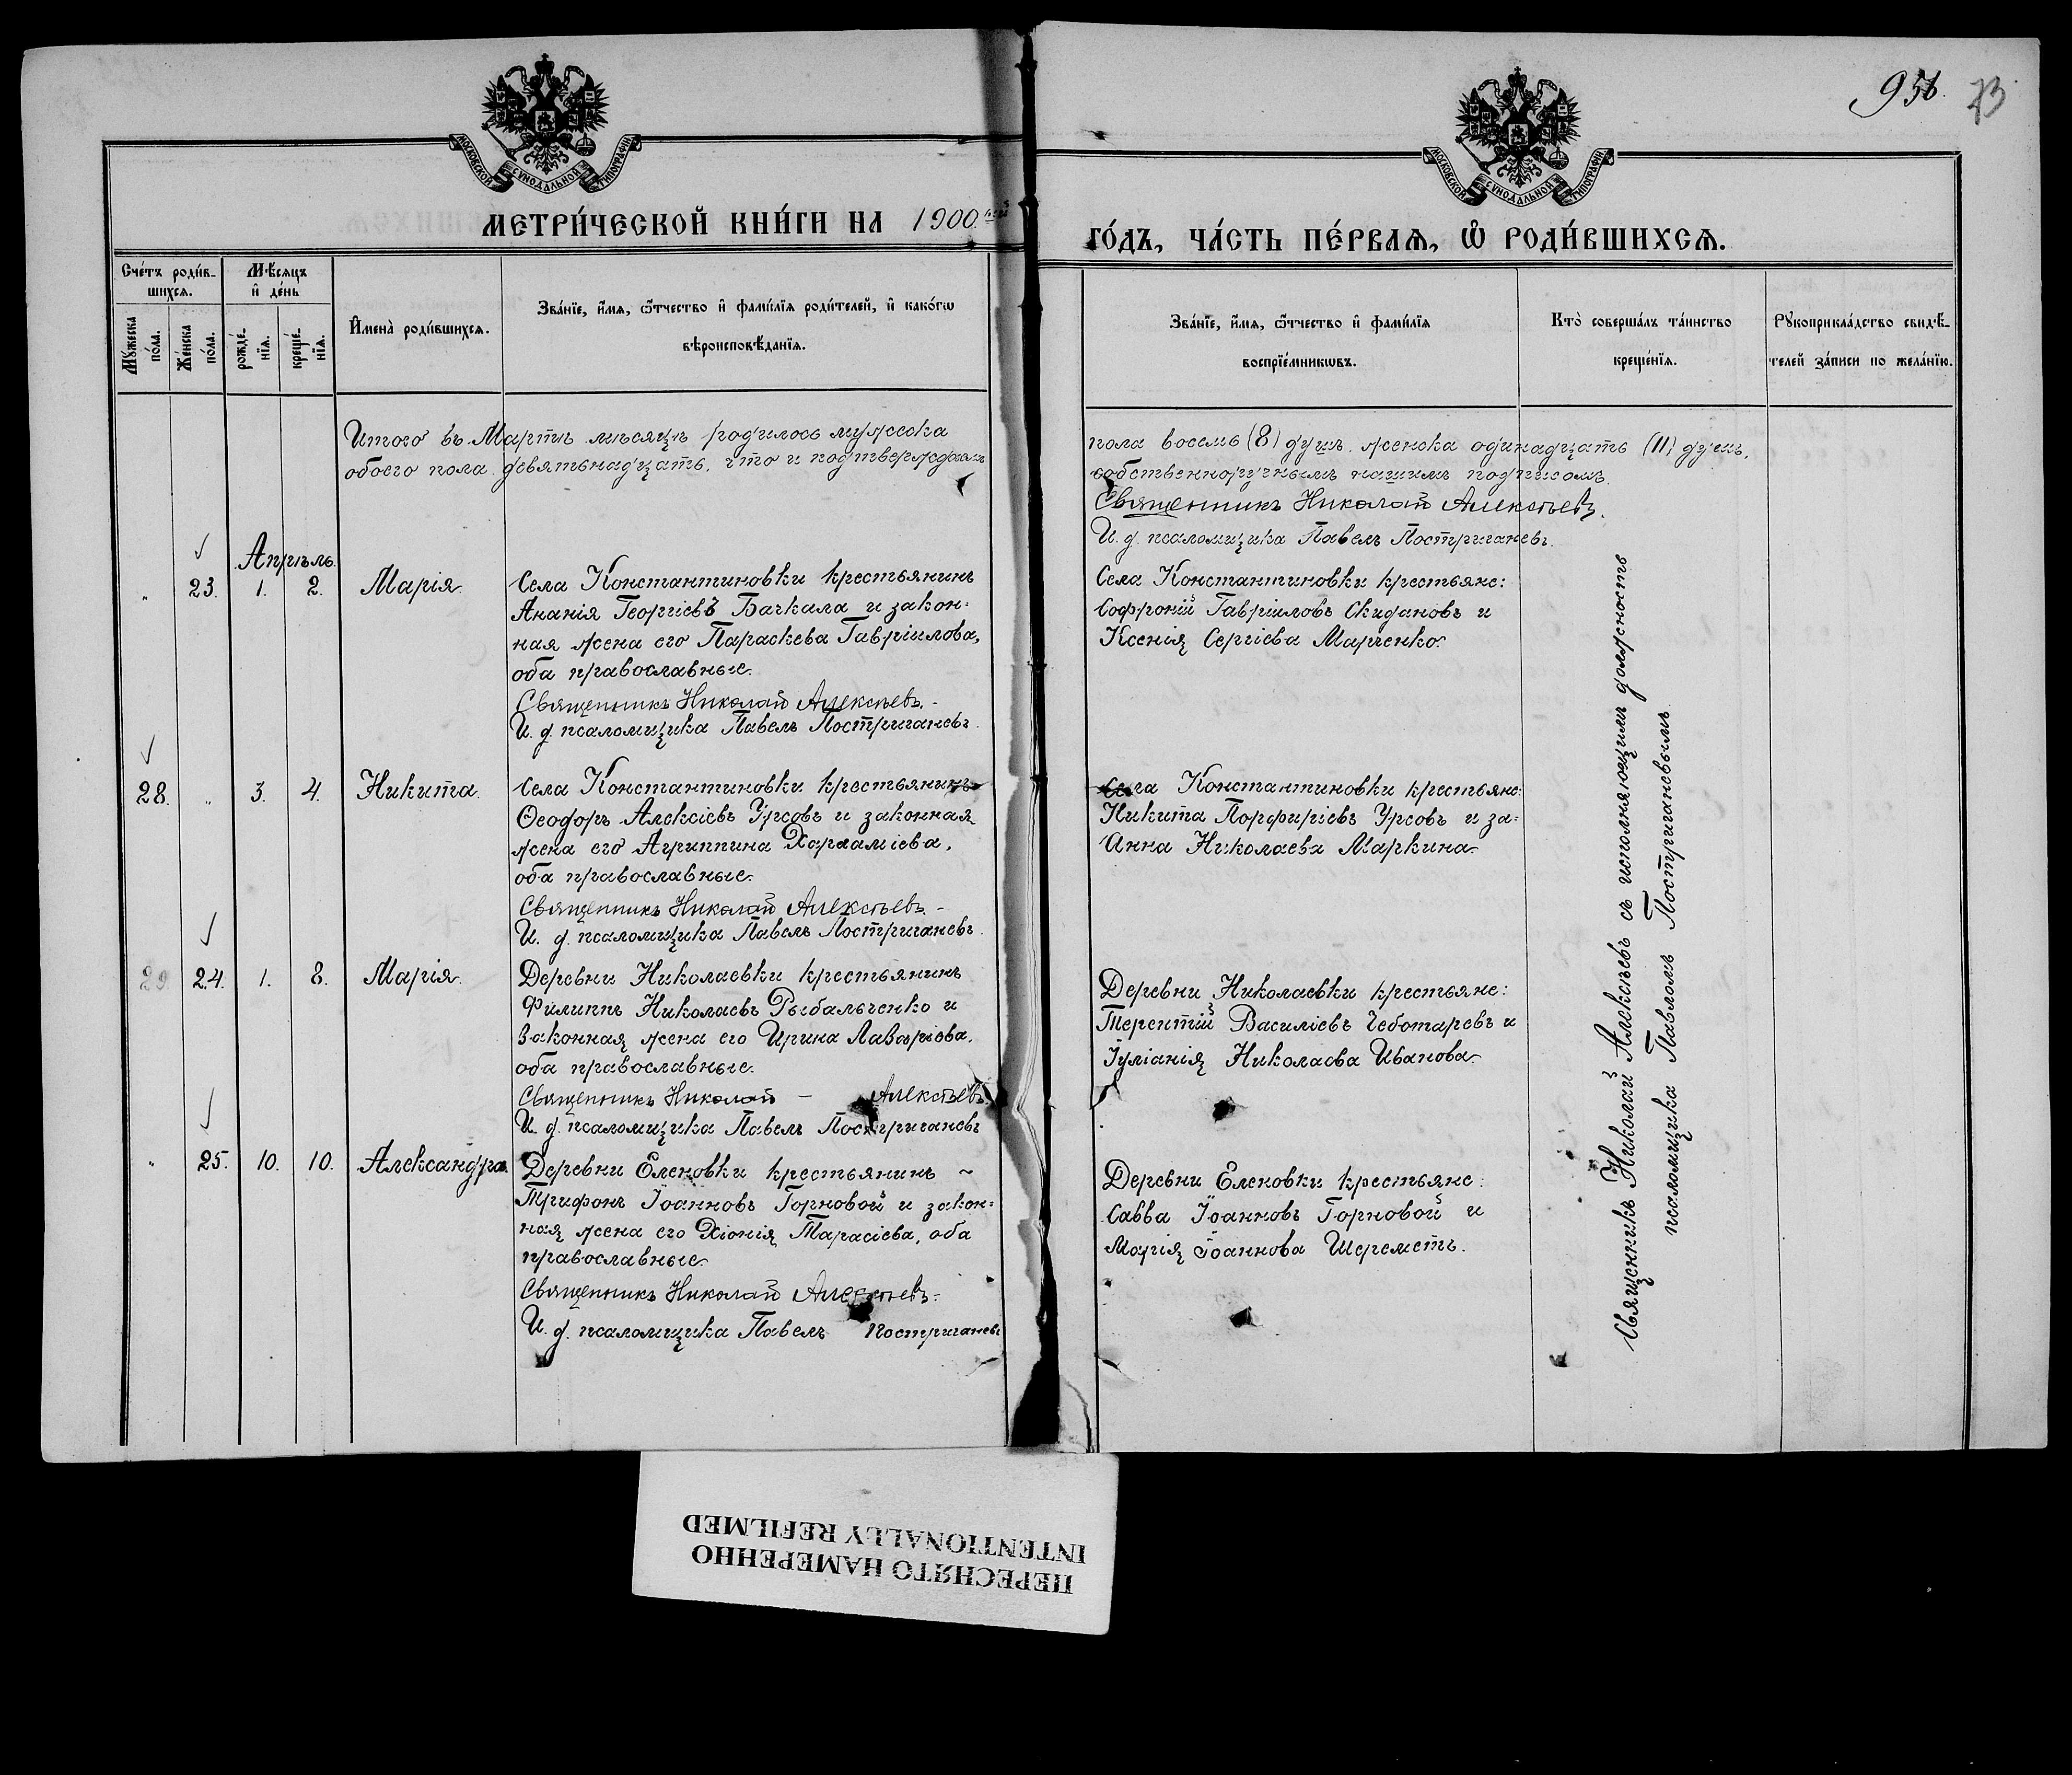 956. 73
МОСКОВСКОЙ СѴНОДАЛЬНОЙ ТИПОГРАФІИ
МОСКОВСКОЙ СѴНОДАЛЬНОЙ ТИПОГРАФІИ
МЕТРИ́ЧЕСКОЙ КНИ́ГИ НА 1900
ГО́ДЪ, ЧА́СТЬ ПЕ́РВАѦ, Ѽ РОДИ́ВШИХСѦ.
Сче́тъ роди́в-
шихсѧ.
Мꙋ́жеска
по́ла.
Же́нска
по́ла.
Мѣ́сѧцъ
и҆ де́нь
рожде́-
нїѧ.
креще́-
нїѧ.
И҆мена̀ роди́вшихсѧ.
Зва́нїе, и҆́мѧ, ѻ҆́тчество и҆ фами́лїѧ роди́телей, и҆ како́гѡ
вѣроисповѣ́данїѧ.
Зва́нїе, и҆́мѧ, ѻ҆́тчество и҆ фами́лїѧ
воспрїе́мникѡвъ.
Кто̀ соверша́лъ та́инство
креще́нїѧ.
Рꙋкоприкла́дство свидѣ́-
телей за́писи по жела́нїю.
Итого въ Мартѣ мѣсяцѣ родилось мужеска
обоего пола девятьнадцать, что и подтверждаемъ
пола восемь (8) душъ, женска одинадцать (11) душъ,
собственноручнымъ нашимъ подписомъ.
Священникъ Николай Алексѣевъ.
И. д. псаломщика Павелъ Постригановъ.
Апрѣль.
„ 23. 1. 2. Марія.
Села Константиновки крестьянинъ
Ананія Георгіевъ Бачкала и закон=
ная жена его Параскева Гавріилова,
оба православные.
Священникъ Николай Алексѣевъ.-
И. д. псаломщика Павелъ Постригановъ.
Села Константиновки крестьяне:
Софроній Гавріиловъ Скидановъ и
Ксенія Сергіева Марченко.
28. „ 3. 4. Никита.
Села Константиновки крестьянинъ
Ѳеодоръ Алексіевъ Урсовъ и законная
жена его Агриппина Харлампіева,
оба православные.
Священникъ Николай Алексѣевъ.-
И. д. псаломщика Павелъ Постригановъ.
Села Константиновки крестьяне:
Никита Порфиріевъ Урсовъ и за=
Анна Николаева Маркина.
29 24. 1. 8. Марія.
Деревни Николаевки крестьянинъ
Филиппъ Николаевъ Рыбальченко и
законная жена его Ирина
оба православные.
Священникъ Николай - Алексѣевъ.
И. д. псаломщика Павелъ Постригановъ
Деревни Николаевки крестьяне:
Терентій Василіевъ Чеботаревъ и
Іуліанія Николаева Иванова.
„ 25. 10. 10. Александра.
Деревни Еленовки крестьянинъ ~
Трифонъ Іоанновъ Горновой и закон=
ная жена его Хіонія Тарасіева, оба
православные.
Священникъ Николай Алексѣевъ.-
И. д. псаломщика Павелъ Постригановъ
Деревни Еленовки крестьяне:
Савва Іоанновъ Горновой и
Марія Іоаннова Шереметъ.
Священникъ Николай Алексѣевъ съ исполняющимъ должность
псаломщика Павломъ Постригановымъ.
ПЕРЕСНЯТО НАМЕРЕННО
INTENTIONALLY REFILMED